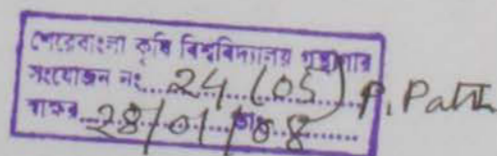 শেরেবাংলা কৃষি বিশ্ববিদ্যালয় গ্রন্থাগার
সংযোজন নং 24 (05) P. Path
28/01/08